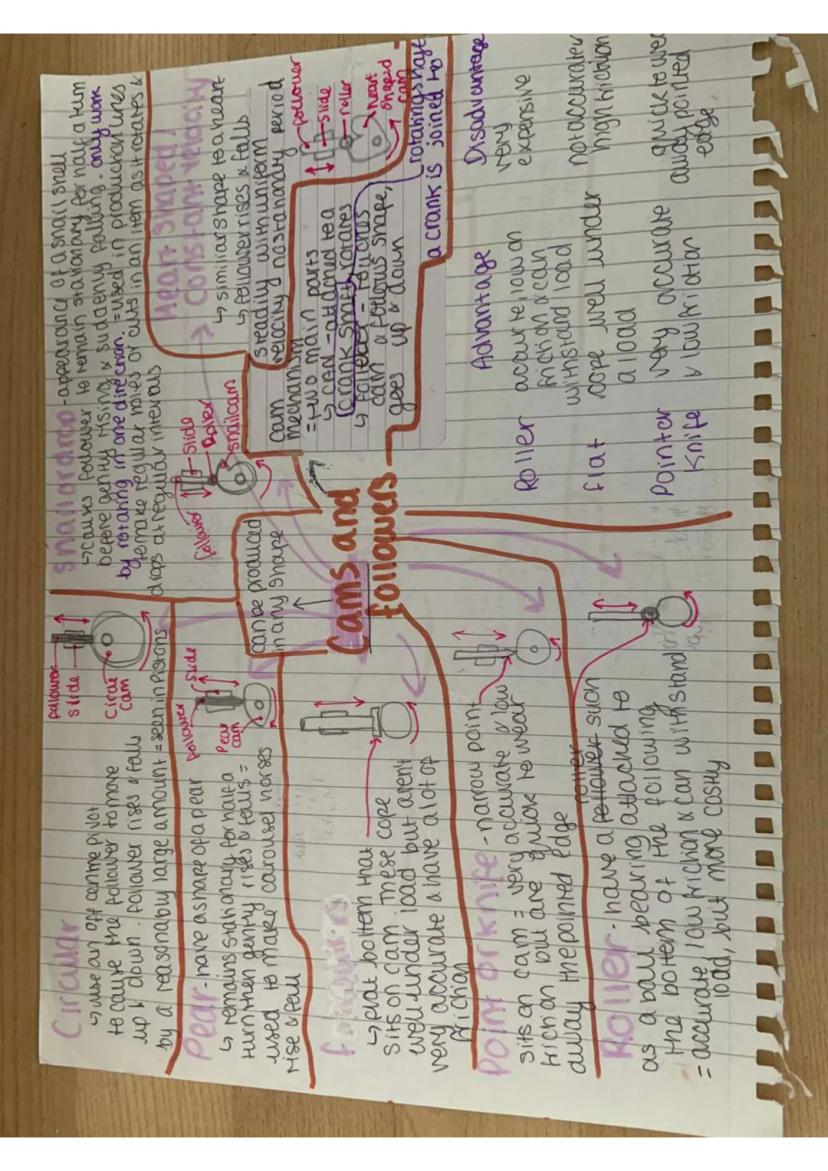 Circular
↳ use an off centre pivot
to cause the follower to move
up & down. follower rises & falls
by a reasonably large amount = seen in pistons
follower
slide
Circle
cam
Pear - have a shape of a pear
↳ remains stationary for half a
turn then gently rises & falls =
used to make carousel horses
rise & fall
follower
slide
Pear
cam
↳ flat bottom that
sits on cam. These cope
well under load but arent
very accurate & have a lot of
friction
Point or knife - narrow point
sits on cam = very accurate & low
friction but are quick to wear
away the pointed edge
roller
Roller - have a follower such
as a ball bearing attached to
the bottom of the following
= accurate low friction & can withstand
load, but more costly
Cams and
followers
can be produced
in any shape
snail or drop - appearance of a snail shell
↳ causes follower to remain stationary for half a turn
before gently rising & suddenly falling. only work
by rotating in one direction. = used in production lines
to make regular holes or cuts in an item as it rotates &
drops at regular intervals
follower
slide
Roller
snail cam
Heart Shaped /
constant velocity
↳ similar shape to a heart
↳ follower rises & falls
steadily with uniform
velocity no stationary period
follower
slide
roller
heart
shaped
cam
cam
mechanism
= two main parts
↳ cam - attached to a
crankshaft, rotates
↳ follower - follows
cam & follows shape,
goes up & down
rotating shaft
a crank is joined to
Advantage
Disadvantage
Roller
accurate low on
friction & can
withstand load
very
expensive
flat
cope well under
a load
not accurate
high friction
Pointer
Knife
very accurate
& low friction
quick to wear
away pointed
edge